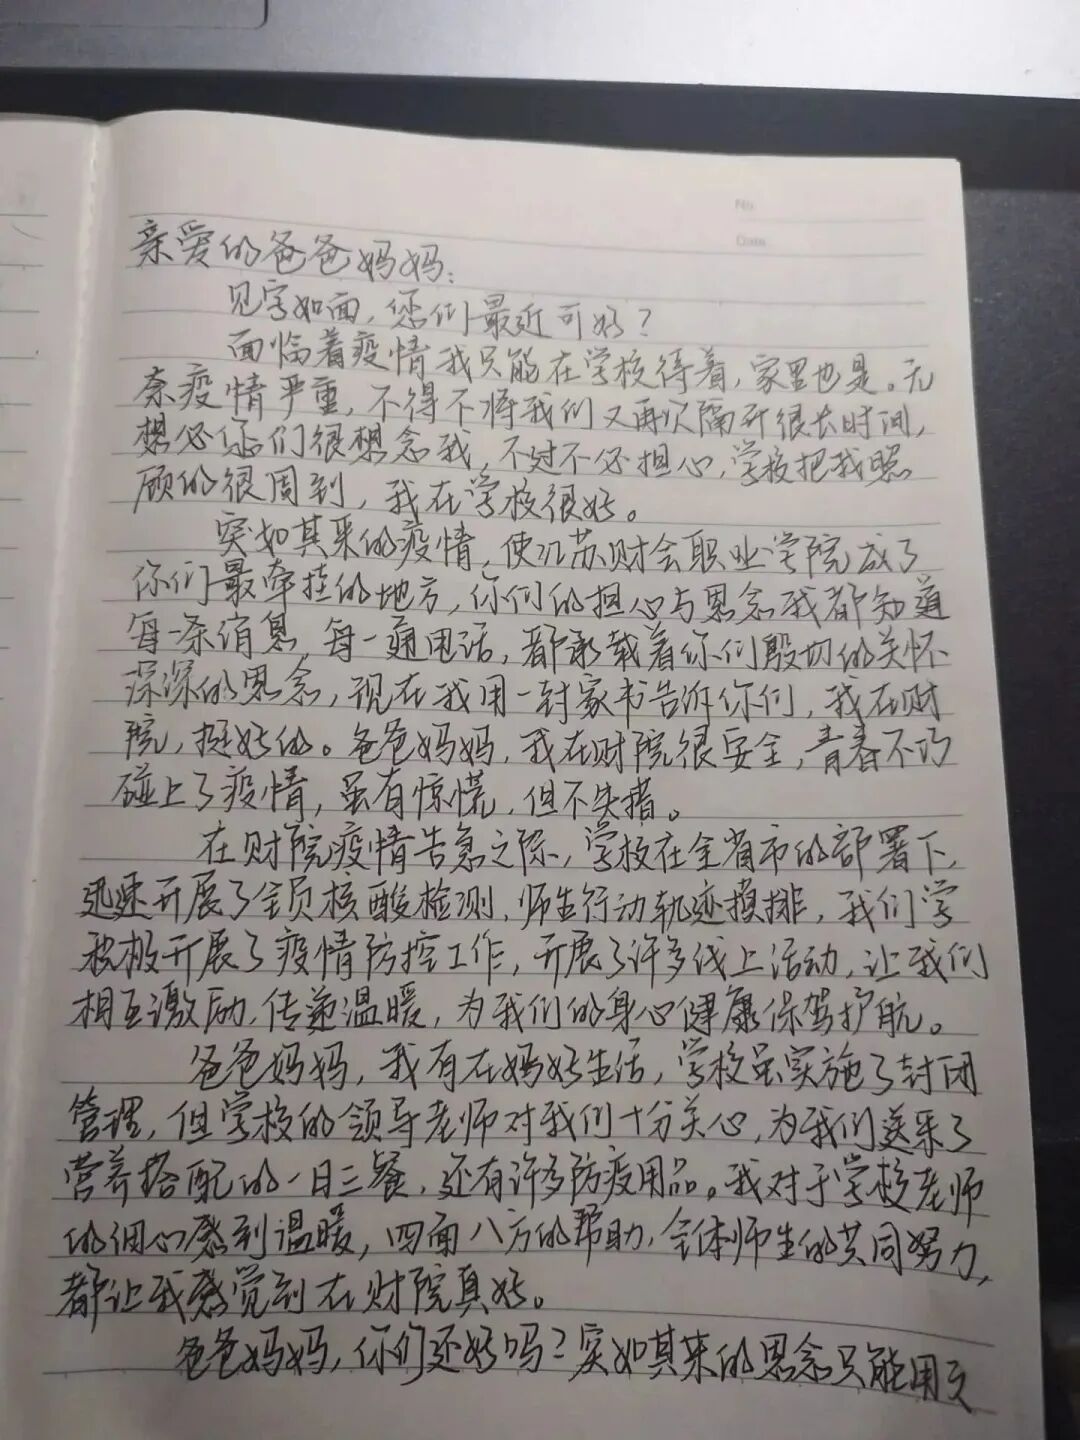 No.
Date
亲爱的爸爸妈妈:
见字如面,您们最近可好?
面临着疫情我只能在学校待着,家里也是。无
奈疫情严重,不得不将我们又再次隔开很长时间,
想必你们很想念我,不过不必担心,学校把我照
顾的很周到,我在学校很好。
突如其来的疫情,使江苏财会职业学院成了
你们最牵挂的地方,你们的担心与思念我都知道
每一条消息,每一通电话,都承载着你们殷切的关怀
深深的思念,现在我用一封家书告诉你们,我在财
院,挺好的。爸爸妈妈,我在财院很安全,青春不巧
碰上了疫情,虽有惊慌,但不失措。
在财院疫情告急之际,学校在全省市的部署下,
迅速开展了全员核酸检测,师生行动轨迹摸排,我们学
积极开展了疫情防控工作,开展了许多线上活动,让我们
相互激励,传递温暖,为我们的身心健康保驾护航。
爸爸妈妈,我有在好好生活,学校虽实施了封闭
管理,但学校的领导老师对我们十分关心,为我们送来了
营养搭配的一日三餐,还有许多防疫用品。我对于学校老师
的细心感到温暖,四面八方的帮助,全体师生的共同努力,
都让我感觉到在财院真好。
爸爸妈妈,你们还好吗?突如其来的思念只能用文